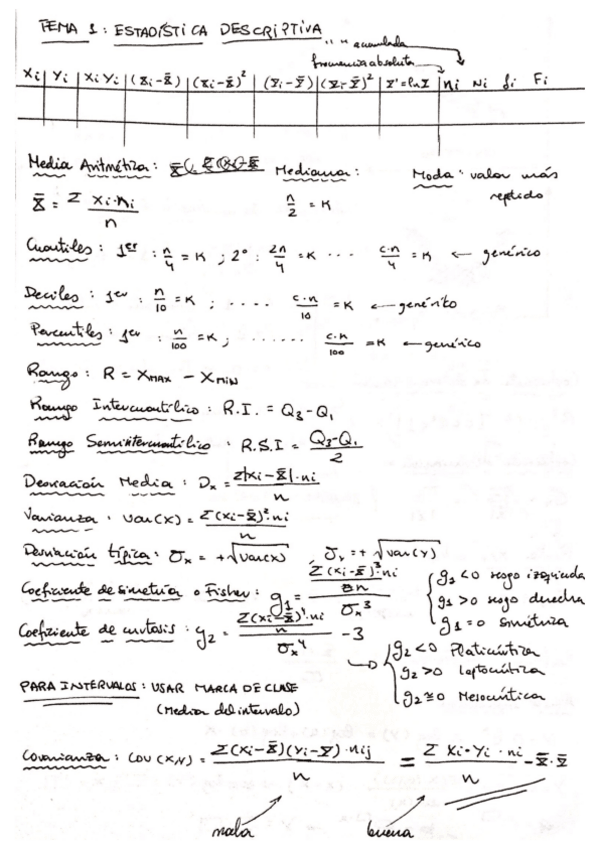 TEMA 1: ESTADÍSTICA DESCRIPTIVA
" " acumulada
frecuencia absoluta
Xi | Yi | Xi Yi | (Xi-X̄) | (Xi-X̄)² | (Yi-Ȳ) | (Yi-Ȳ)² | Z'=ln X | ni Ni fi Fi
Media Aritmética: Mediana: Moda: valor más
repetido
X̄ = Σ Xi·ni / n    n/2 = K
Cuartiles: 1er: n/4 = K ; 2º: 2n/4 = K ... c·n/4 = K ← genérico
Deciles: 1er: n/10 = K ; .... c·n/10 = K ← genérico
Percentiles: 1er: n/100 = K ; ...... c·n/100 = K ← genérico
Rango: R = XMAX - XMIN
Rango Intercuartílico: R.I. = Q3-Q1
Rango Semiintercuartílico: R.S.I = Q3-Q1 / 2
Desviación Media: Dx = Σ|xi-X̄|·ni / n
Varianza: Var(X) = Σ(Xi-X̄)²·ni / n
Desviación típica: σx = +√Var(X) σy = +√Var(Y)
Coeficiente de simetría o Fisher: g1 = Σ(xi-X̄)³·ni / n / σx³
g1<0 sesgo izquierda
g1>0 sesgo derecha
g1=0 simétrica
Coeficiente de curtosis: g2 = Σ(xi-X̄)⁴·ni / n / σx⁴ - 3
g2<0 Platicúrtica
g2>0 Leptocúrtica
g2≅0 Mesocúrtica
PARA INTERVALOS: USAR MARCA DE CLASE
(Media del intervalo)
Covarianza: COV(X,Y) = Σ(Xi-X̄)(Yi-Ȳ)·nij / n = Σ Xi·Yi·ni / n - X̄·Ȳ
mala buena